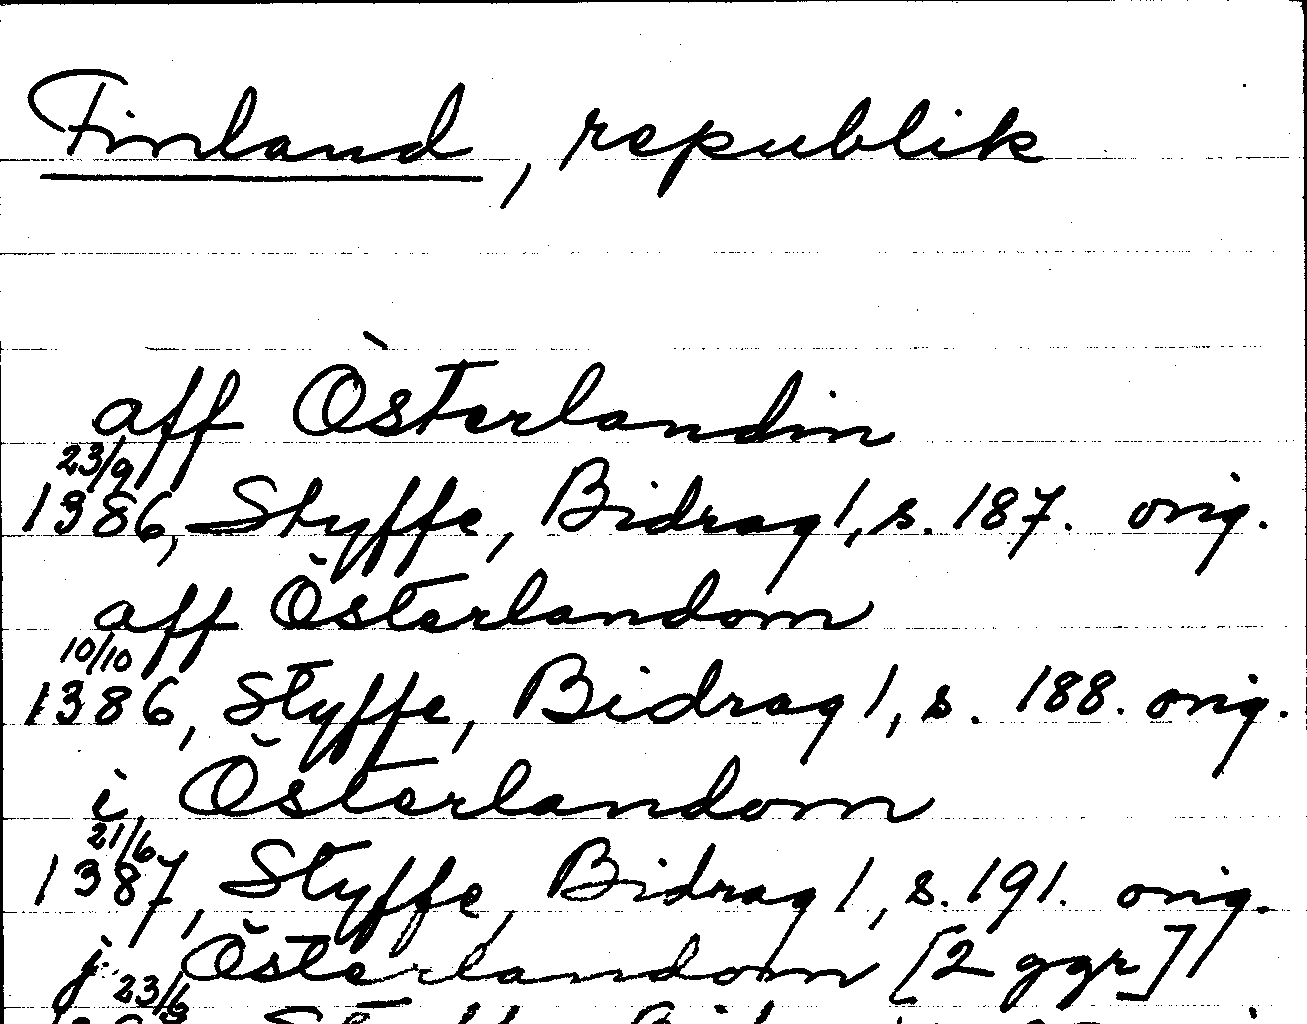 Finland, republik
aff Österlandin
23/9
1386, Styffe, Bidrag 1, s. 187. orig.
aff Österlandom
10/10
1386, Styffe, Bidrag 1, s. 188. orig.
i Österlandom
21/6
1387, Styffe, Bidrag 1, s. 191. orig.
j Österlandom [2 ggr]
23/6